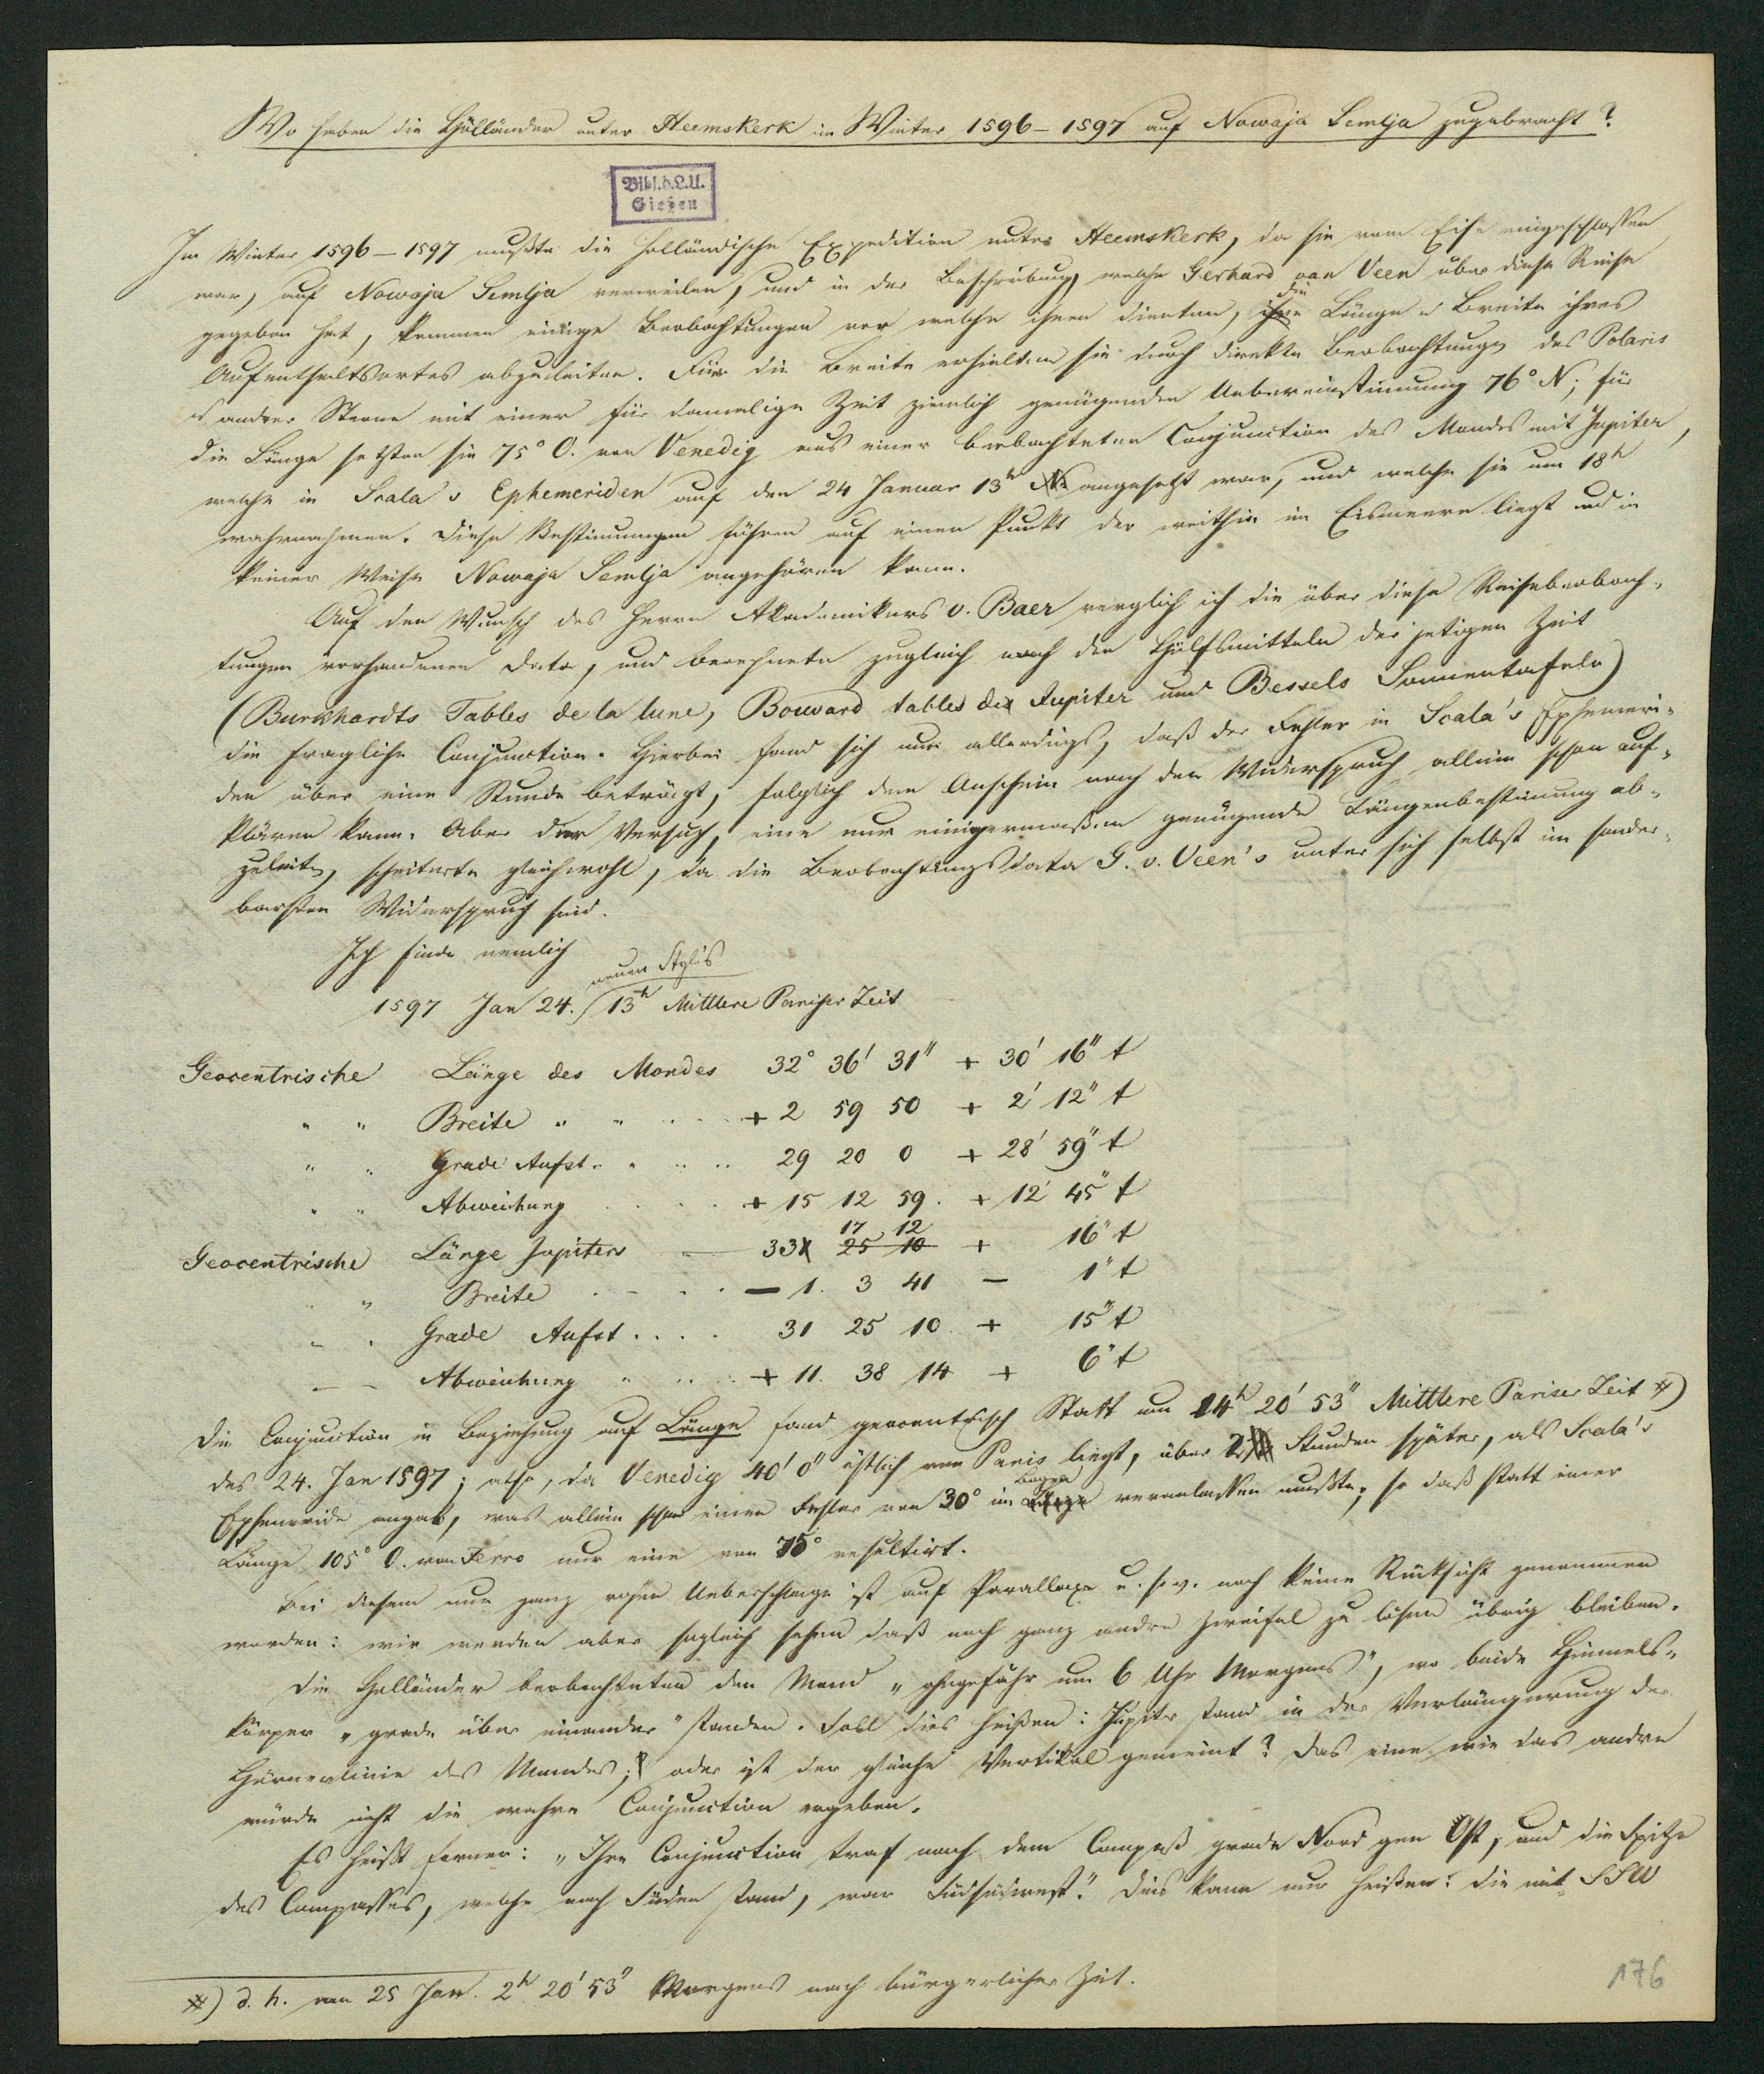 Wo haben die Holländer unter Heemskerk im Winter 1596–1597 auf Nowaja Semlja zugebracht?
Bibl. d. L. U.
Gießen
Im Winter 1596–1597 mußte die holländische Expedition unter Heemskerk, da sie vom Eise eingeschlossen
war, auf Nowaja Semlja verweilen, und in der Beschreibung welche Gerhard van Veen über diese Reise
gegeben hat, kommen einige Beobachtungen vor welche ihnen dienten, die Länge u Breite ihres
Aufenthaltsortes abzuleiten. Für die Breite erhielten sie durch direkte Beobachtung des Polaris
u andrer Sterne mit einer für damalige Zeit ziemlich genügenden Uebereinstimmung 76° N; für
die Länge setzten sie 75° O. von Venedig aus einer beobachteten Conjunction des Mondes mit Jupiter,
welche in Scala's Ephemeriden auf den 24 Januar 13h angesetzt war, und welche sie um 18h
wahrnahmen. Diese Bestimmungen führen auf einen Punkt der weithin im Eismeere liegt und in
keiner Weise Nowaja Semlja angehören kann.
Auf den Wunsch des Herrn Akademikers v. Baer verglich ich die über diese Reisebeobach-
tungen vorhandenen Data, und berechnete zugleich nach den Hülfsmitteln der jetigen Zeit
(Burkhardts Tables de la lune, Bouvard tables de Jupiter und Bessels Sonnentafeln)
die fragliche Conjunction. Hierbei fand sich nun allerdings, daß der Fehler in Scala's Ephemeri-
den über eine Stunde beträgt, folglich dem Anschein nach den Widerspruch allein schon auf-
klären kann. Aber der Versuch, eine nur einigermaßen genügende Längenbestimmung ab-
zuleiten, scheiterte gleichwohl, da die Beobachtungsdata G. v. Veen's unter sich selbst im sonder-
barsten Widerspruch sind.
Ich finde nemlich
neuen Styls
1597 Jan 24. 13h Mittlere Pariser Zeit
Geocentrische Länge des Mondes 32° 36' 31" + 30' 16" t
" " Breite " " + 2 59 50 + 2' 12" t
" " Grade Aufst. . . . . 29 20 0 + 28' 59" t
" " Abweichung . . . . + 15 12 59 . + 12' 45" t
17 12
Geocentrische Länge Jupiters — 33 25 10 + 16" t
" " Breite . - . . . — 1. 3 41 — 1" t
" . Grade Aufst. . . . 31 25 10 + 15" t
— – Abweichung " " . . + 11. 38 14 + 6" t
Die Conjunction in Beziehung auf Länge fand geocentrisch Statt um 14h 20' 53" Mittlere Pariser Zeit *)
des 24. Jan 1597; also, da Venedig 40' 0" östlich von Paris liegt, über 2 Stunden später, als Scala's
Ephemeride angab, was allein schon einen Fehler von 30° im Bogen veranlassen mußte; so daß statt einer
Länge 105° O. von Ferro nur eine von 75° resultirt.
Bei diesem nur ganz rohen Ueberschlage ist auf Parallaxe u. s. w. noch keine Rücksicht genommen
worden: wir werden aber sogleich sehen daß noch ganz andre Zweifel zu lösen übrig bleiben.
Die Holländer beobachteten den Mond "ohngefähr um 6 Uhr Morgens", wo beide Himmels-
körper "grade über einander" standen. Soll dies heißen: Jupiter stand in der Verlängerung der
Hörnerlinie des Mondes; oder ist der gleiche Vertikal gemeint? Das eine wie das andre
würde nicht die wahre Conjunction ergeben.
Es heißt ferner: "Ihre Conjunction traf nach dem Compaß grade Nord gen Ost, und die Spitze
des Compasses, welche nach Süden stand, war Südsüdwest." Dies kann nur heißen: die mit SSW
*) d. h. am 25 Jan. 2h 20' 53" Morgens nach bürgerlicher Zeit.
176